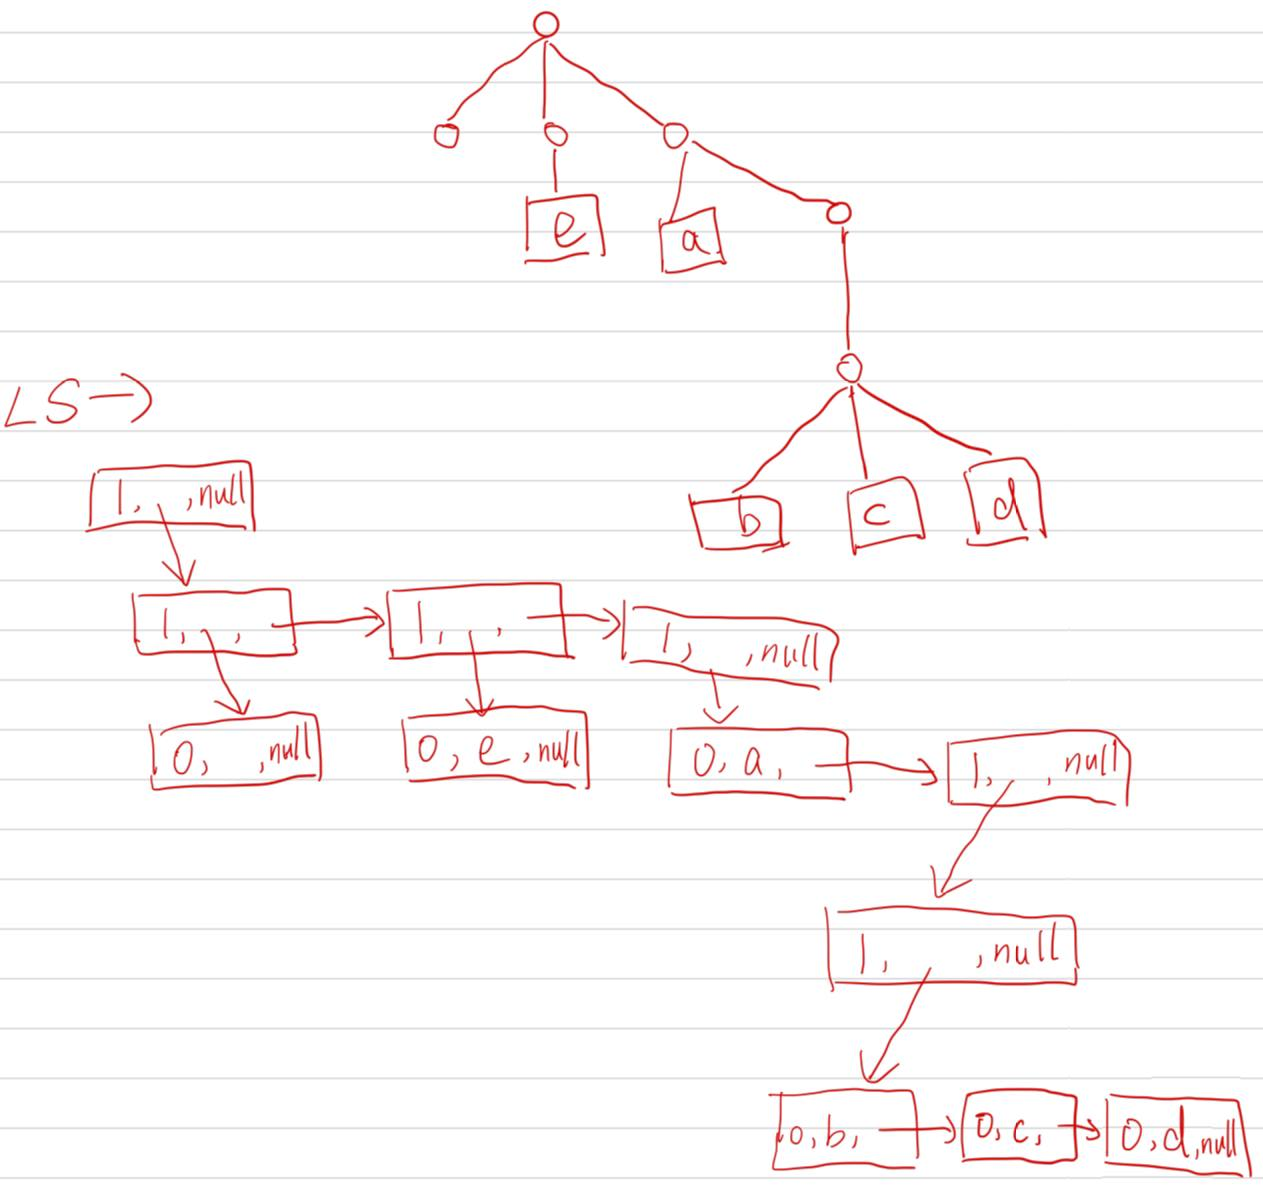 e
a
LS
b c d
1, ,null
1, , 1, , 1, ,null
0, ,null 0, e, null 0, a, 1, , null
1, , null
0, b, 0, c, 0, d, null